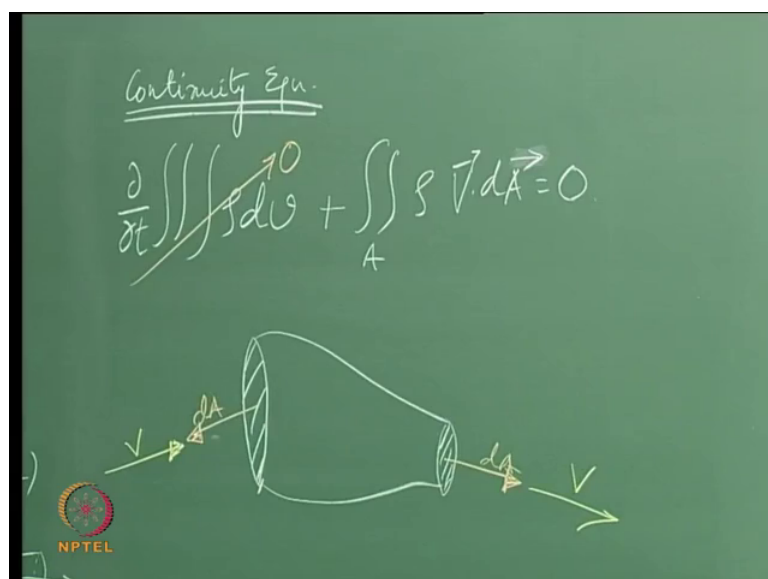 Continuity Equ.
∂/∂t ∭ ρ dυ → 0 + ∬_A ρ V⃗ . dA⃗ = 0
dA
V
dA
V
NPTEL